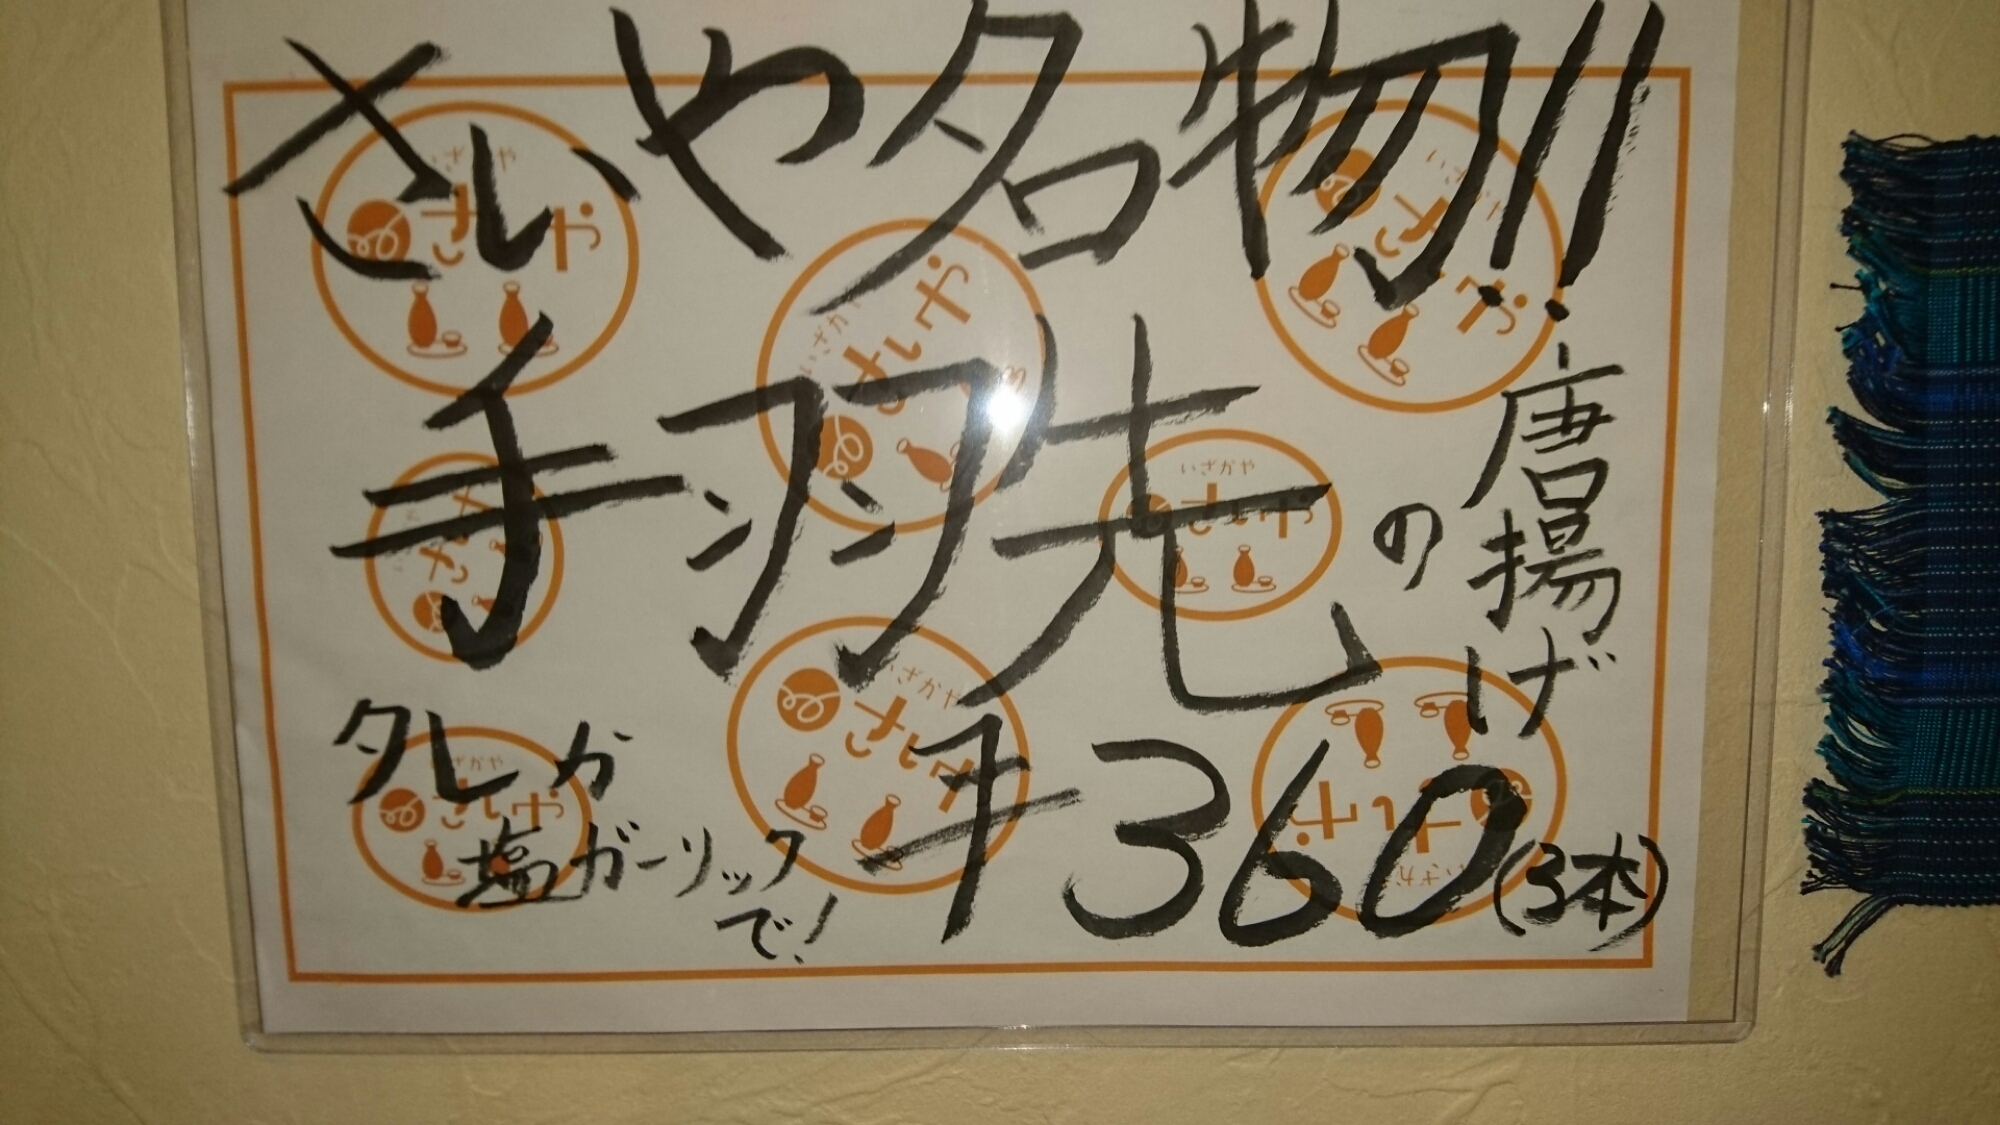 さいや名物!!
手羽先の唐揚げ
タレか
塩ガーリック
で!
¥360(3本)
いざかや
さいや
いざかや
さいや
いざかや
さいや
いざかや
さいや
いざかや
さいや
いざかや
さいや
いざかや
さいや